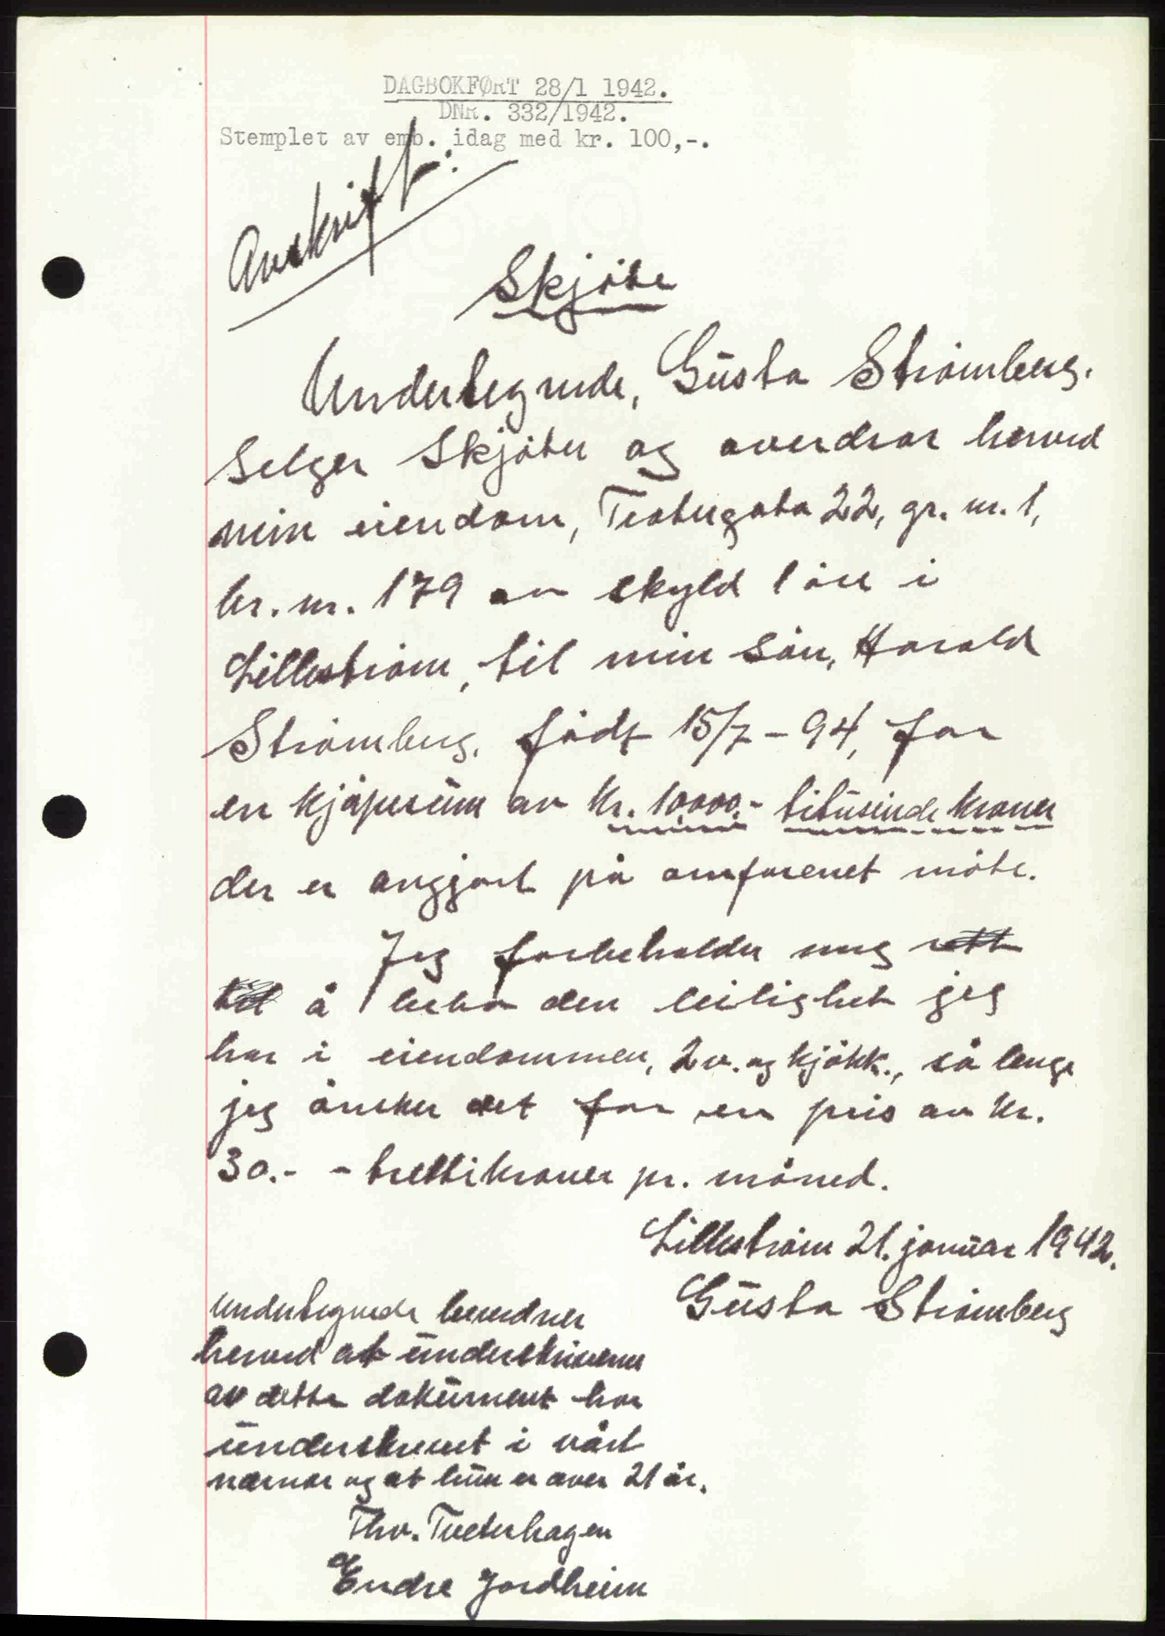 DAGBOKFØRT 28/1 1942.
DNR. 332/1942.
Stemplet av emb. idag med kr. 100,-.
Avskrift:
Skjöte
Undertegnede, Güsta Strömberg.
Selger Skjöter og overdrar herved
min eiendom, Teatergata 22, gr. nr. 1,
br. nr. 179 av skyld 1 öre i
Lilleström, til min sön, Harald
Strömberg. födt 15/7-94, for
en kjöpesüm av kr. 10000.- titüsinde kroner
der er avgjort på omforenet möte.
Jeg forbeholder meg rett
til å leie den leilighet jeg
har i eiendommen, 2 v. og kjökk., så lenge
jeg önsker det for en pris av kr.
30.- - trettikroner pr. måned.
Lilleström 21. janüar 1942.
Güsta Strömberg
Undertegnede bevidner
herved at ünderskriveren
av dette doküment har
ünderskrevet i vårt
nærvær og at hün er over 21 år.
Thv. Tveterhagen
Endre Jordheim